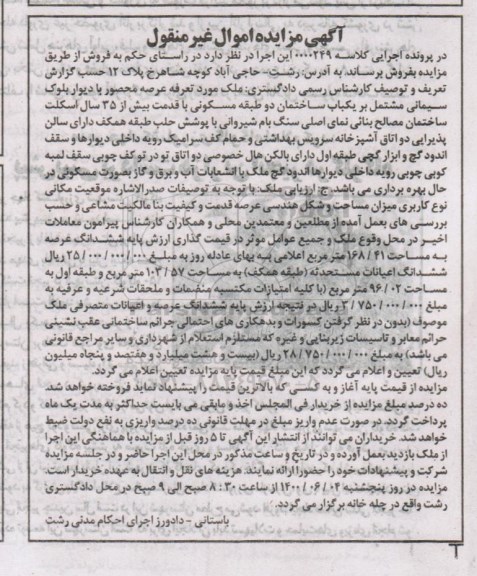 آگهی مزایده اموال غیر منقول
در پرونده اجرایی کلاسه ۰۰۰۰۲۴۹ این اجرا در نظر دارد در راستای حکم به فروش از طریق
مزایده بفروش برساند. به آدرس: رشت- حاجی آباد کوچه شاهرخ پلاک ۱۲ حسب گزارش
تعریف و توصیف کارشناس رسمی دادگستری: ملک مورد تعرفه عرصه محصور با دیوار بلوک
سیمانی مشتمل بر یکباب ساختمان دو طبقه مسکونی با قدمت بیش از ۳۵ سال اسکلت
ساختمان مصالح بنائی نمای اصلی سنگ بام شیروانی با پوشش حلب طبقه همکف دارای سالن
پذیرایی دو اتاق آشپزخانه سرویس بهداشتی و حمام کف سرامیک رویه داخلی دیوارها و سقف
اندود گچ و ابزار گچی طبقه اول دارای بالکن هال خصوصی دو اتاق تو در تو کف چوبی سقف لمبه
کوبی چوبی رویه داخلی دیوارها اندود گچ ملک با انشعابات آب و برق و گاز بصورت مسکونی در
حال بهره برداری می باشد. ج: ارزیابی ملک: با توجه به توصیفات صدرالاشاره موقعیت مکانی
نوع کاربری میزان مساحت و شکل هندسی عرصه قدمت و کیفیت بنا مالکیت مشاعی و حسب
بررسی های بعمل آمده از مطلعین و معتمدین محلی و همکاران کارشناس پیرامون معاملات
اخیر در محل وقوع ملک و جمیع عوامل موثر در قیمت گذاری ارزش پایه ششدانگ عرصه
به مساحت ۱۶۸/۴۱ متر مربع اعلامی به بهای عادله روز به مبلغ ۲۵/۰۰۰/۰۰۰/۰۰۰ ریال
ششدانگ اعیانات مستحدثه (طبقه همکف) به مساحت ۱۰۳/۵۷ متر مربع و طبقه اول به
مساحت ۹۶/۰۲ متر مربع (با کلیه امتیازات مکتسبه منضمات و ملحقات شرعیه و عرفیه به
مبلغ ۳/۷۵۰/۰۰۰/۰۰۰ ریال در نتیجه ارزش پایه ششدانگ عرصه و اعیانات متصرفی ملک
موصوف (بدون در نظر گرفتن کسورات و بدهکاری های احتمالی جرائم ساختمانی عقب نشینی
جرائم معابر و تاسیسات زیربنایی و غیره که مستلزم استعلام از شهرداری و سایر مراجع قانونی
می باشد) به مبلغ ۲۸/۷۵۰/۰۰۰/۰۰۰ ریال (بیست و هشت میلیارد و هفتصد و پنجاه میلیون
ریال) تعیین و اعلام می گردد که این مبلغ قیمت پایه مزایده تعیین اعلام می گردد.
مزایده از قیمت پایه آغاز و به کسی که بالاترین قیمت را پیشنهاد نماید فروخته خواهد شد.
ده درصد مبلغ مزایده از خریدار فی المجلس اخذ و مابقی می بایست حداکثر به مدت یک ماه
پرداخت گردد. در صورت عدم واریز مبلغ در مهلت قانونی ده درصد واریزی به نفع دولت ضبط
خواهد شد. خریداران می توانند از انتشار این آگهی تا ۵ روز قبل از مزایده با هماهنگی این اجرا
از ملک بازدید بعمل آورده و در تاریخ و ساعت مذکور در محل این اجرا حاضر و در جلسه مزایده
شرکت و پیشنهادات خود را حضورا ارائه نمایند. هزینه های نقل و انتقال به عهده خریدار است.
مزایده در روز پنجشنبه ۱۴۰۰/۰۶/۰۴ از ساعت ۸:۳۰ صبح الی ۹ صبح در محل دادگستری
رشت واقع در چله خانه برگزار می گردد.
باستانی - دادورز اجرای احکام مدنی رشت